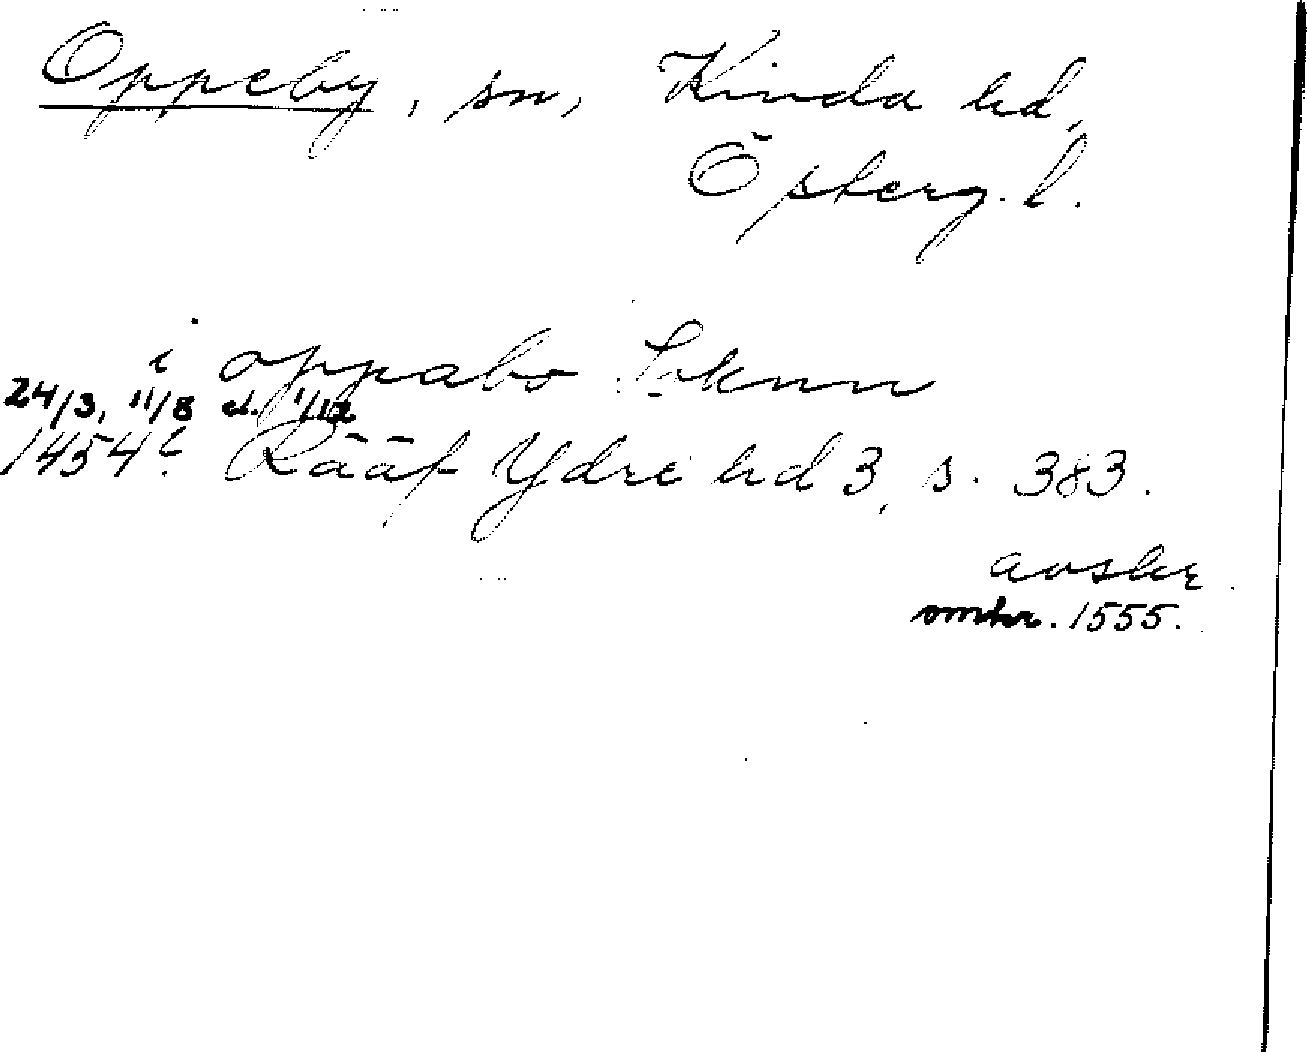 Oppeby, sn, Kinda hd,
Österg. l.
i oppabo Soknn
24/3, 11/8 el. 1/12
1454? Rääf Ydre hd 3, s. 383.
avskr.
omkr. 1555.